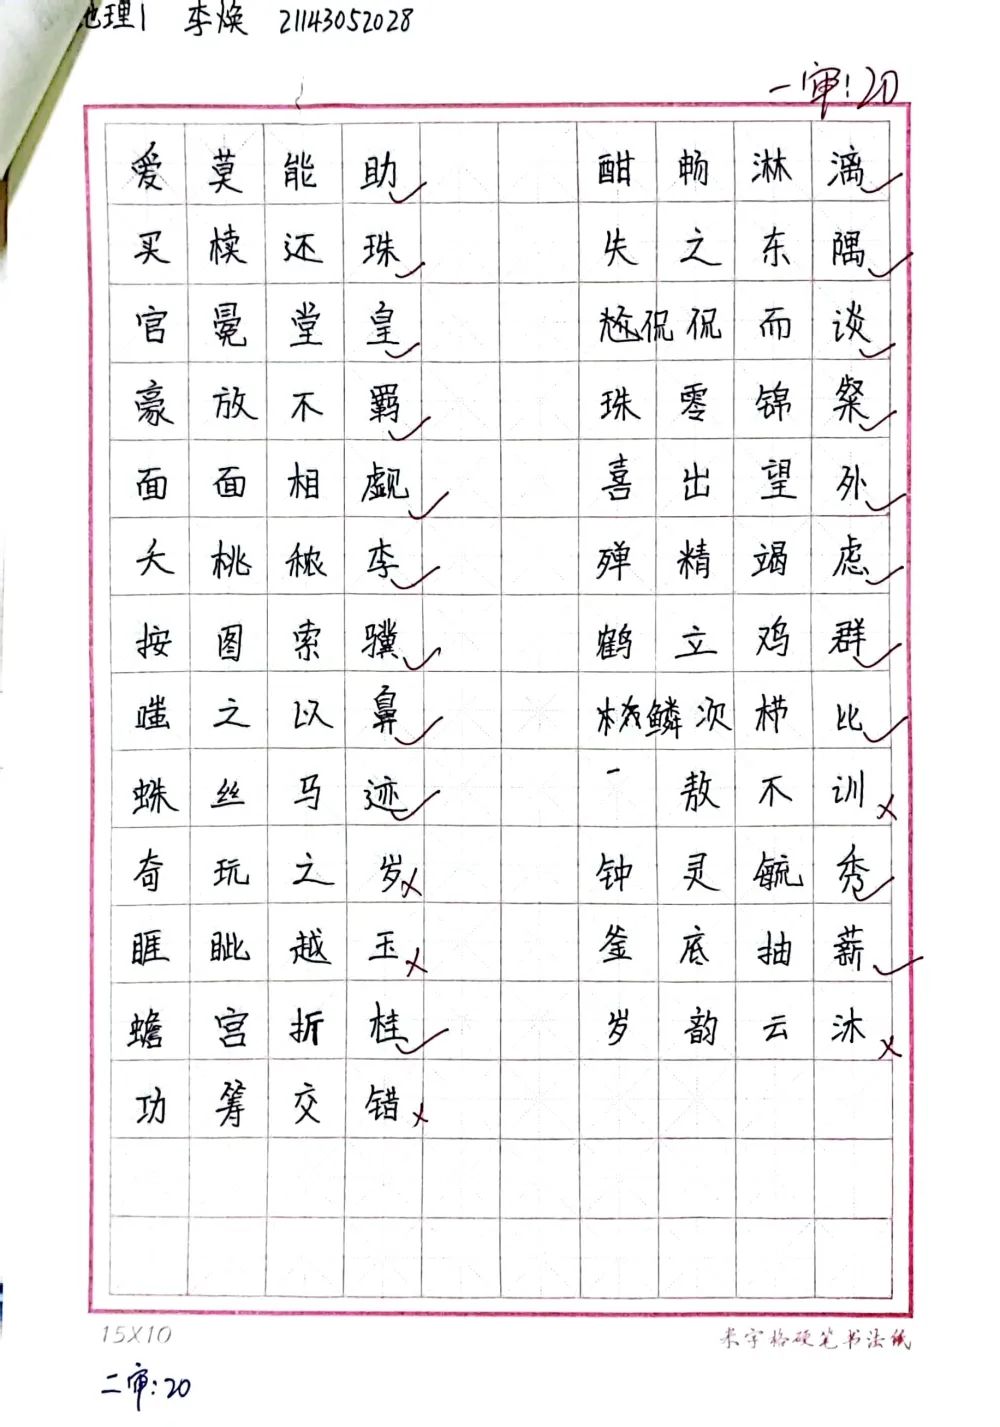 地理1 李焕 21143052028
一审:20
爱莫能助 酣畅淋漓
买椟还珠 失之东隅
官冕堂皇 侃侃而谈
豪放不羁 珠零锦粲
面面相觑 喜出望外
夭桃秾李 殚精竭虑
按图索骥 鹤立鸡群
嗤之以鼻 鳞次栉比
蛛丝马迹 一敖不训
奇玩之岁 钟灵毓秀
睚眦越玉 釜底抽薪
蟾宫折桂 岁韵云沐
功筹交错
15X10 米字格硬笔书法纸
二审:20